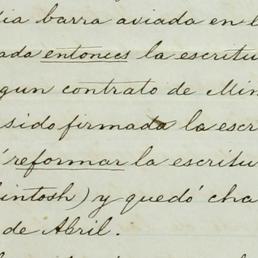 dia barra aviada en l
ada entonces la escritu
gun contrato de Min
sido firmada la escr
reformar la escritu
intosh) y quedó cha
de Abril.